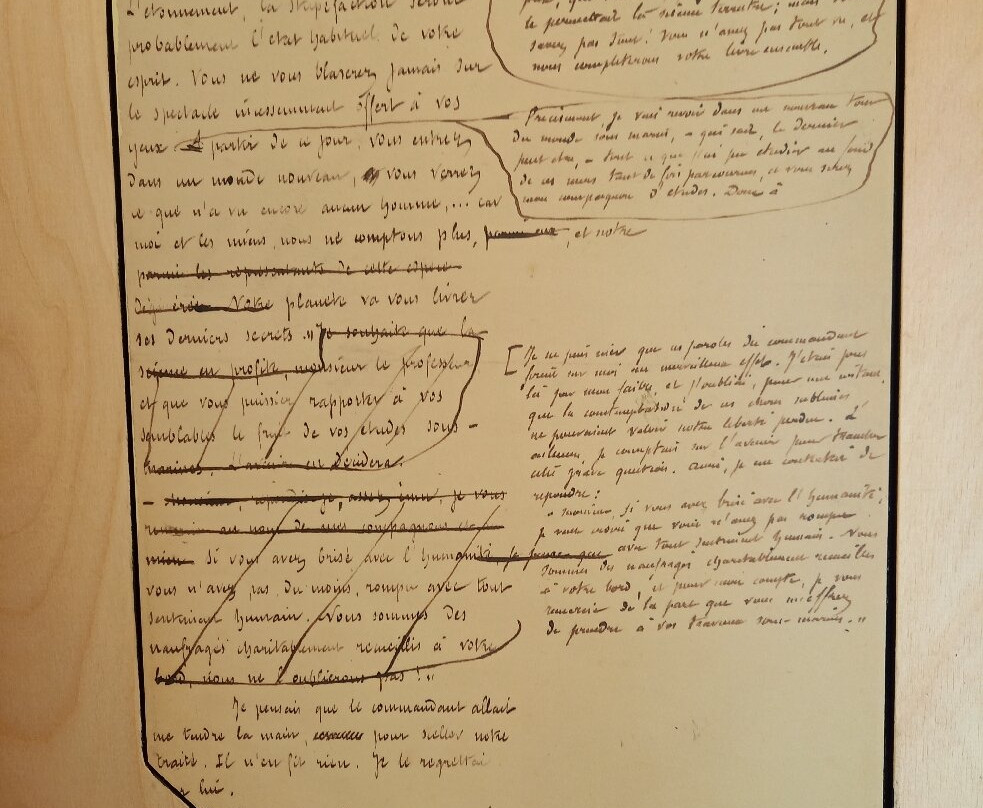 L'étonnement, la stupéfaction seront
probablement l'état habituel de votre
esprit. Vous ne vous blaserez jamais sur
le spectacle incessamment offert à vos
yeux A partir de ce jour, vous entrez
dans un monde nouveau, vous verrez
ce que n'a vu encore aucun homme,... car
moi et les miens, nous ne comptons plus, parmi eux, et notre
parmi les représentants de cette espèce
dégénérée. Votre planète va vous livrer
ses derniers secrets. » Je souhaite que la
science en profite, monsieur le professeur
et que vous puissiez rapporter à vos
semblables le fruit de vos études sous-
marines. L'avenir en décidera.
— Monsieur, répondis-je, assez ému, je vous
remercie au nom de mes compagnons et
mien. Si vous avez brisé avec l'humanité, je pense que
vous n'avez pas, du moins, rompu avec tout
sentiment humain. Nous sommes des
naufragés charitablement recueillis à votre
bord, nous ne l'oublierons pas ! »
Je pensais que le commandant allait
me tendre la main, pour sceller notre
traité. Il n'en fit rien. Je le regrettai
lui.
le permettait la science terrestre; mais
savez pas tout! Vous n'avez pas tout vu, et
nous compléterons votre livre ensemble.
Précisément, je vais revoir dans un nouveau tour
du monde sous marin, - qui sait, le dernier
peut être, - tout ce que j'ai pu étudier au fond
de ces mers tant de fois parcourues, et vous serez
mon compagnon d'études. Donc à
[Je ne puis nier que ces paroles du commandant
firent sur moi un merveilleux effet. J'étais pris
là par mon faible, et j'oubliai, pour un instant,
que la contemplation de ces choses sublimes
ne pouvaient valoir notre liberté perdue. D'
ailleurs, je comptais sur l'avenir pour trancher
cette grave question. Ainsi, je me contentai de
répondre:
« Monsieur, si vous avez brisé avec l'humanité,
je veux croire que vous n'avez pas rompu
avec tout sentiment humain. Nous
sommes des naufragés charitablement recueillis
à votre bord, et pour mon compte, je vous
remercie de la part que vous m'offrez
de prendre à vos travaux sous-marins. »